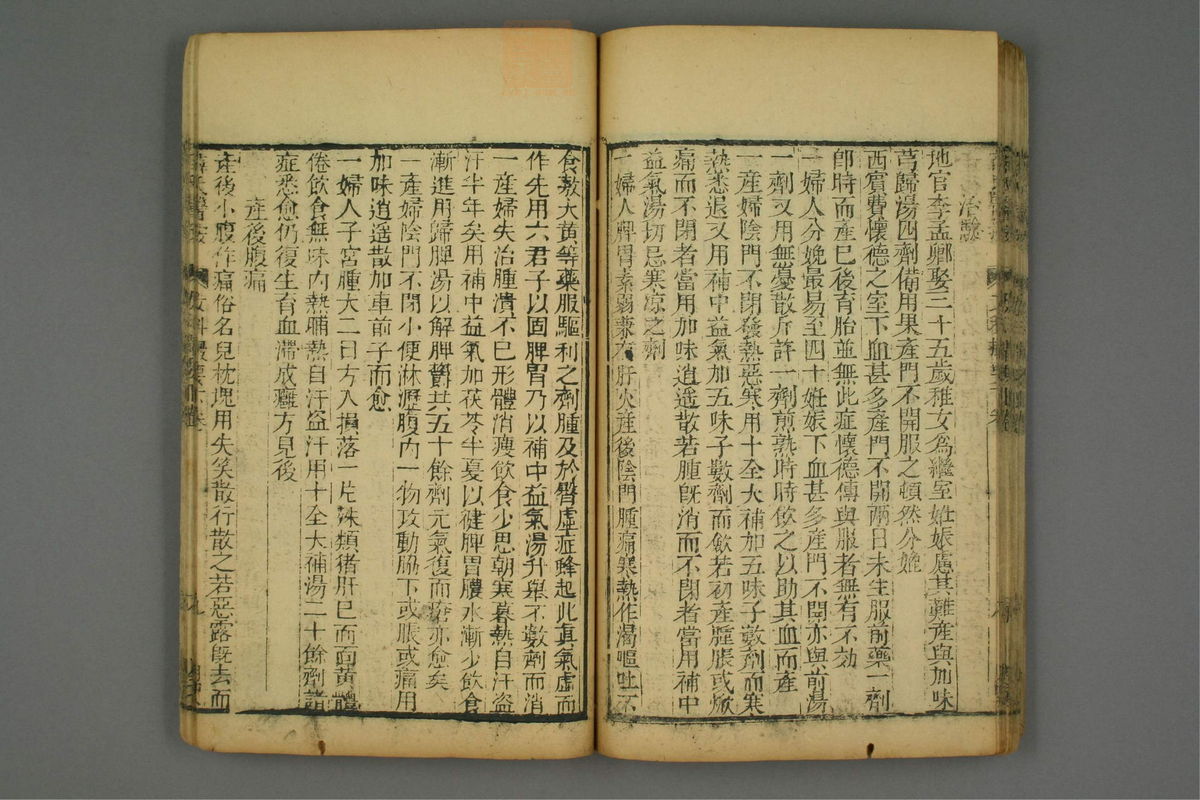 治驗
地官李孟卿娶三十五歲稚女為繼室姙娠慮其難產與加味
芎歸湯四劑備用果產門不開服之頓然分娩
西賓費懷德之室下血甚多產門不開兩日未生服前藥一劑
卽時而產巳後育胎並無此症懷德傳與服者無有不効
一婦人分娩最易至四十姙娠下血甚多產門不開亦與前湯
一劑又用無憂散斤許一劑煎熟時時飲之以助其血而產
一產婦陰門不閉發熱惡寒用十全大補加五味子數劑而寒
熱悉退又用補中益氣加五味子數劑而斂若初產腫脹或焮
痛而不閉者當用加味逍遥散若腫旣消而不閉者當用補中
益氣湯切忌寒凉之劑
一婦人脾胃素弱兼有肝火產後陰門腫痛寒熱作渴嘔吐不
食敷大黃等藥服驅利之劑腫及於臀虛症蜂起此眞氣虛而
作先用六君子以固脾胃乃以補中益氣湯升舉不數劑而消
一產婦失治腫潰不巳形體消瘦飲食少思朝寒暮熱自汗盗
汗半年矣用補中益氣加茯苓半夏以健脾胃膿水漸少飲食
漸進用歸脾湯以解脾欝共五十餘劑元氣復而瘡亦愈矣
一產婦陰門不閉小便淋瀝腹内一物攻動脇下或脹或痛用
加味逍遥散加車前子而愈
一婦人子宮腫大二日方入損落一片殊類猪肝巳而面黃體
倦飲食無味内熱晡熱自汗盗汗用十全大補湯二十餘劑諸
症悉愈仍復生育血滯成癰方見後
產後腹痛
產後小腹作痛俗名兒枕塊用失笑散行散之若惡露旣去而